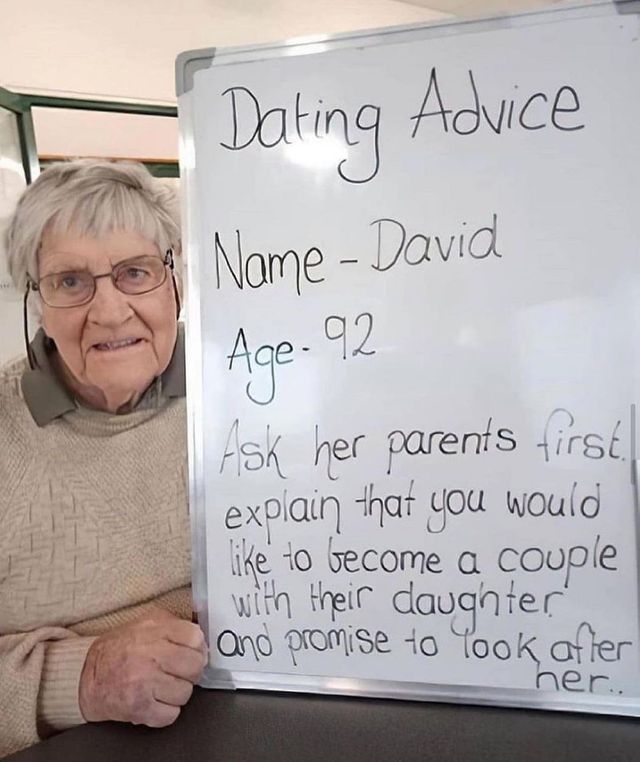 Dating Advice
Name - David
Age - 92
Ask her parents first.
explain that you would
like to become a couple
with their daughter
and promise to look after
her..